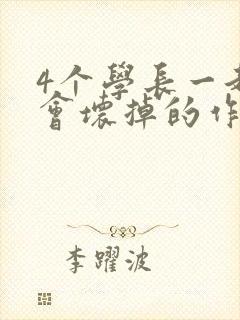 4个學長一起
會壞掉的作
李躍波